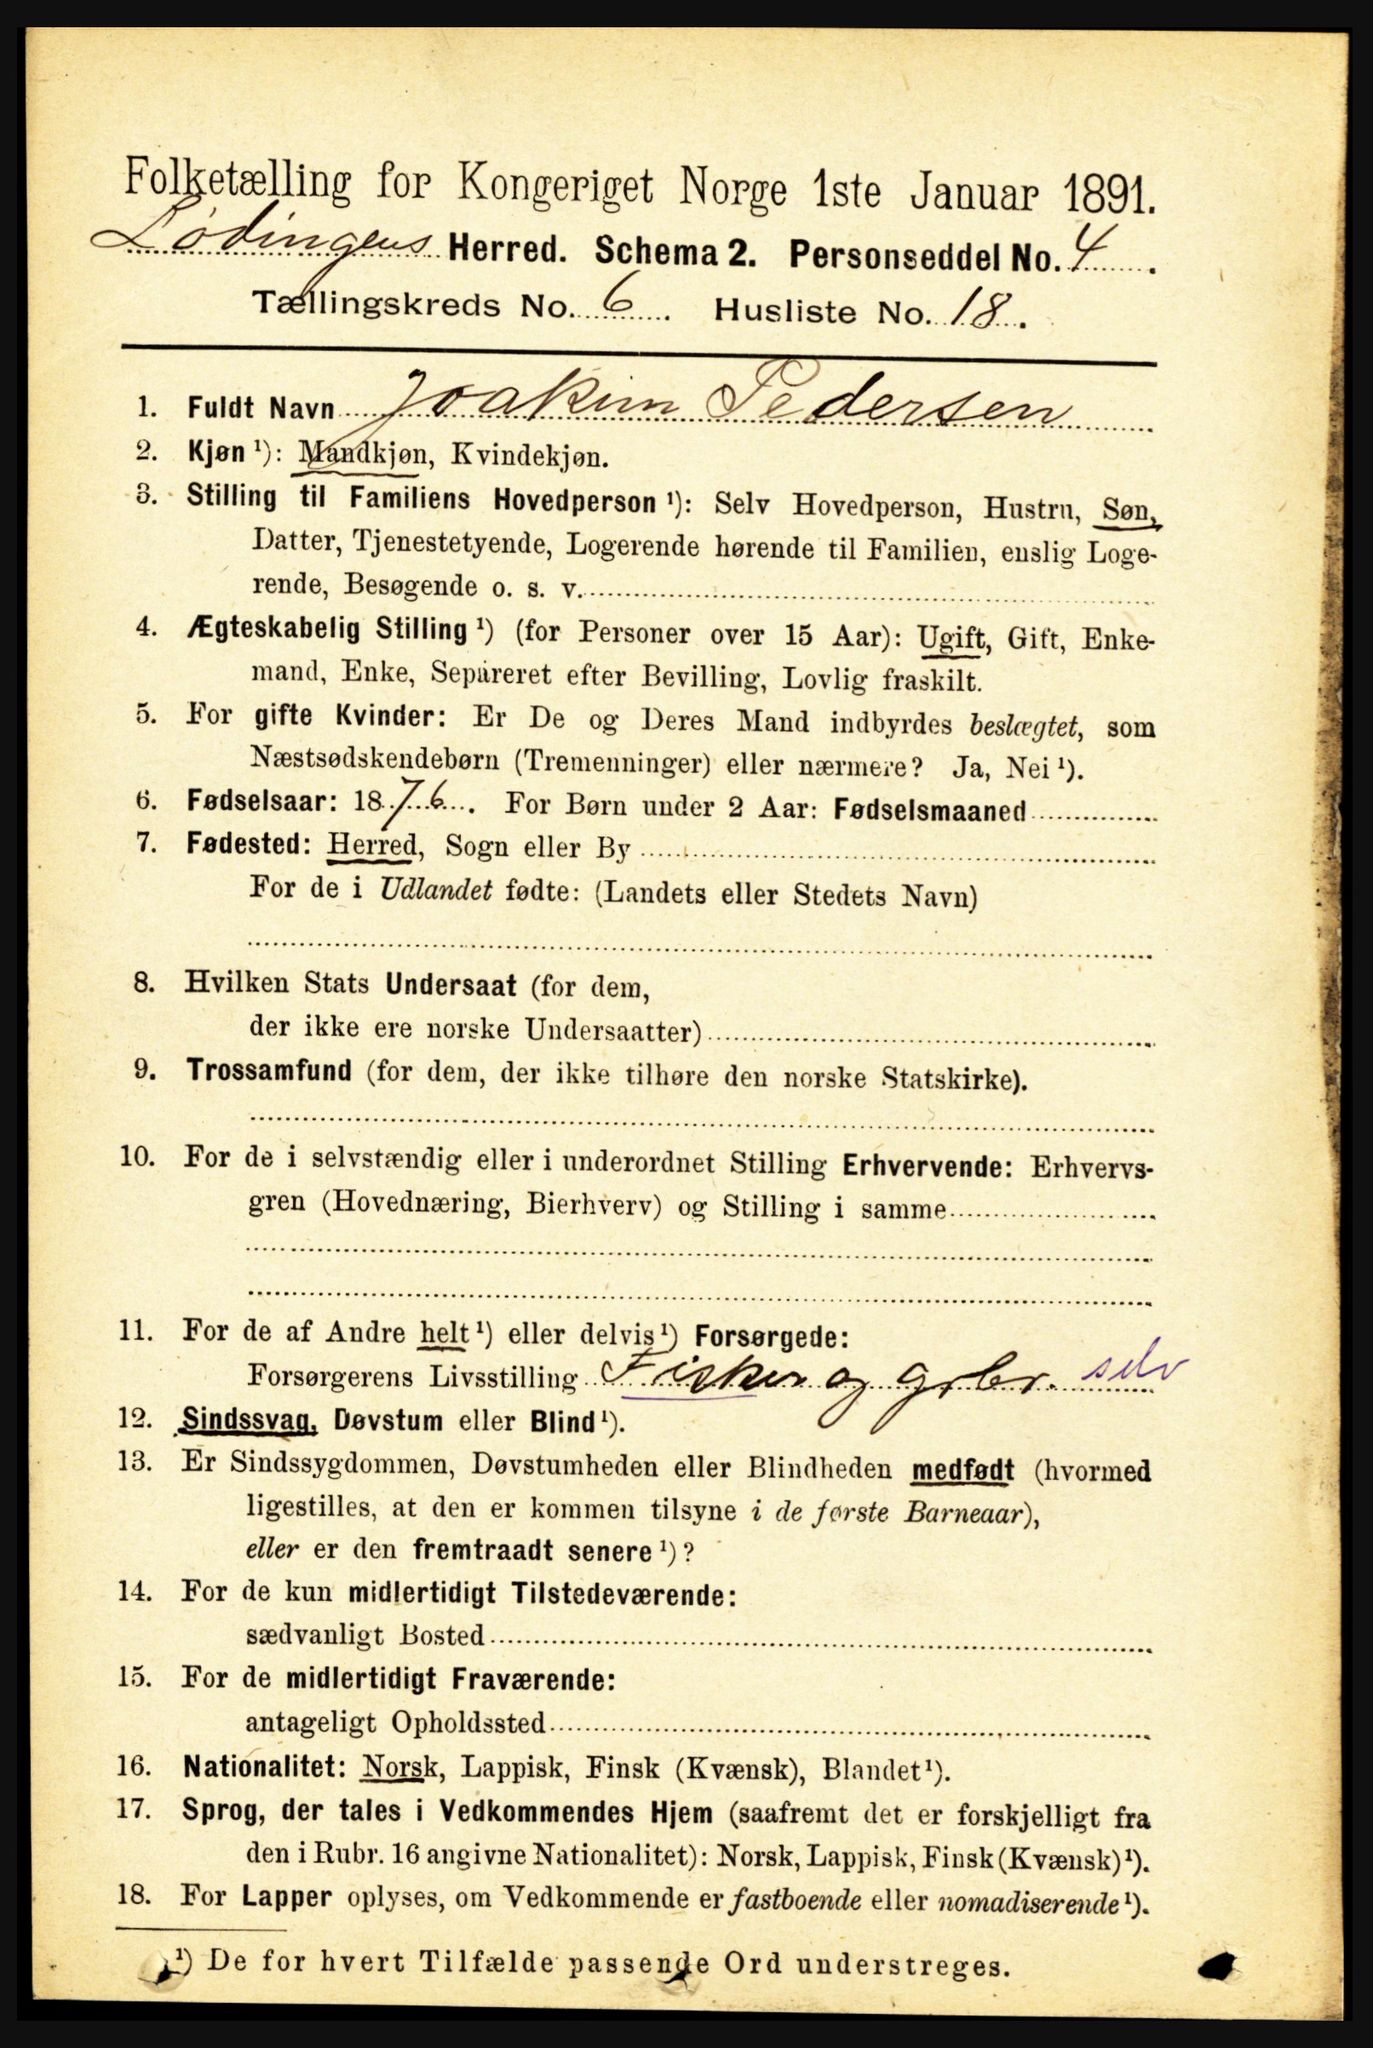 Folketælling for Kongeriget Norge 1ste Januar 1891.
Lødingens Herred. Schema 2. Personseddel No. 4.
Tællingskreds No. 6. Husliste No. 18.
1. Fuldt Navn Joakim Pedersen
2. Kjøn ¹): Mandkjøn, Kvindekjøn.
3. Stilling til Familiens Hovedperson ¹): Selv Hovedperson, Hustru, Søn,
Datter, Tjenestetyende, Logerende hørende til Familien, enslig Loge-
rende, Besøgende o. s. v.
4. Ægteskabelig Stilling ¹) (for Personer over 15 Aar): Ugift, Gift, Enke-
mand, Enke, Separeret efter Bevilling, Lovlig fraskilt.
5. For gifte Kvinder: Er De og Deres Mand indbyrdes beslægtet, som
Næstsødskendebørn (Tremenninger) eller nærmere? Ja, Nei ¹).
6. Fødselsaar: 1876. For Børn under 2 Aar: Fødselsmaaned
7. Fødested: Herred, Sogn eller By
For de i Udlandet fødte: (Landets eller Stedets Navn)
8. Hvilken Stats Undersaat (for dem,
der ikke ere norske Undersaatter)
9. Trossamfund (for dem, der ikke tilhøre den norske Statskirke).
10. For de i selvstændig eller i underordnet Stilling Erhvervende: Erhvervs-
gren (Hovednæring, Bierhverv) og Stilling i samme
11. For de af Andre helt ¹) eller delvis ¹) Forsørgede:
Forsørgerens Livsstilling Fisker og grbr. selv
12. Sindssvag, Døvstum eller Blind ¹).
13. Er Sindssygdommen, Døvstumheden eller Blindheden medfødt (hvormed
ligestilles, at den er kommen tilsyne i de første Barneaar),
eller er den fremtraadt senere ¹)?
14. For de kun midlertidigt Tilstedeværende:
sædvanligt Bosted
15. For de midlertidigt Fraværende:
antageligt Opholdssted
16. Nationalitet: Norsk, Lappisk, Finsk (Kvænsk), Blandet ¹).
17. Sprog, der tales i Vedkommendes Hjem (saafremt det er forskjelligt fra
den i Rubr. 16 angivne Nationalitet): Norsk, Lappisk, Finsk (Kvænsk) ¹).
18. For Lapper oplyses, om Vedkommende er fastboende eller nomadiserende ¹).
¹) De for hvert Tilfælde passende Ord understreges.